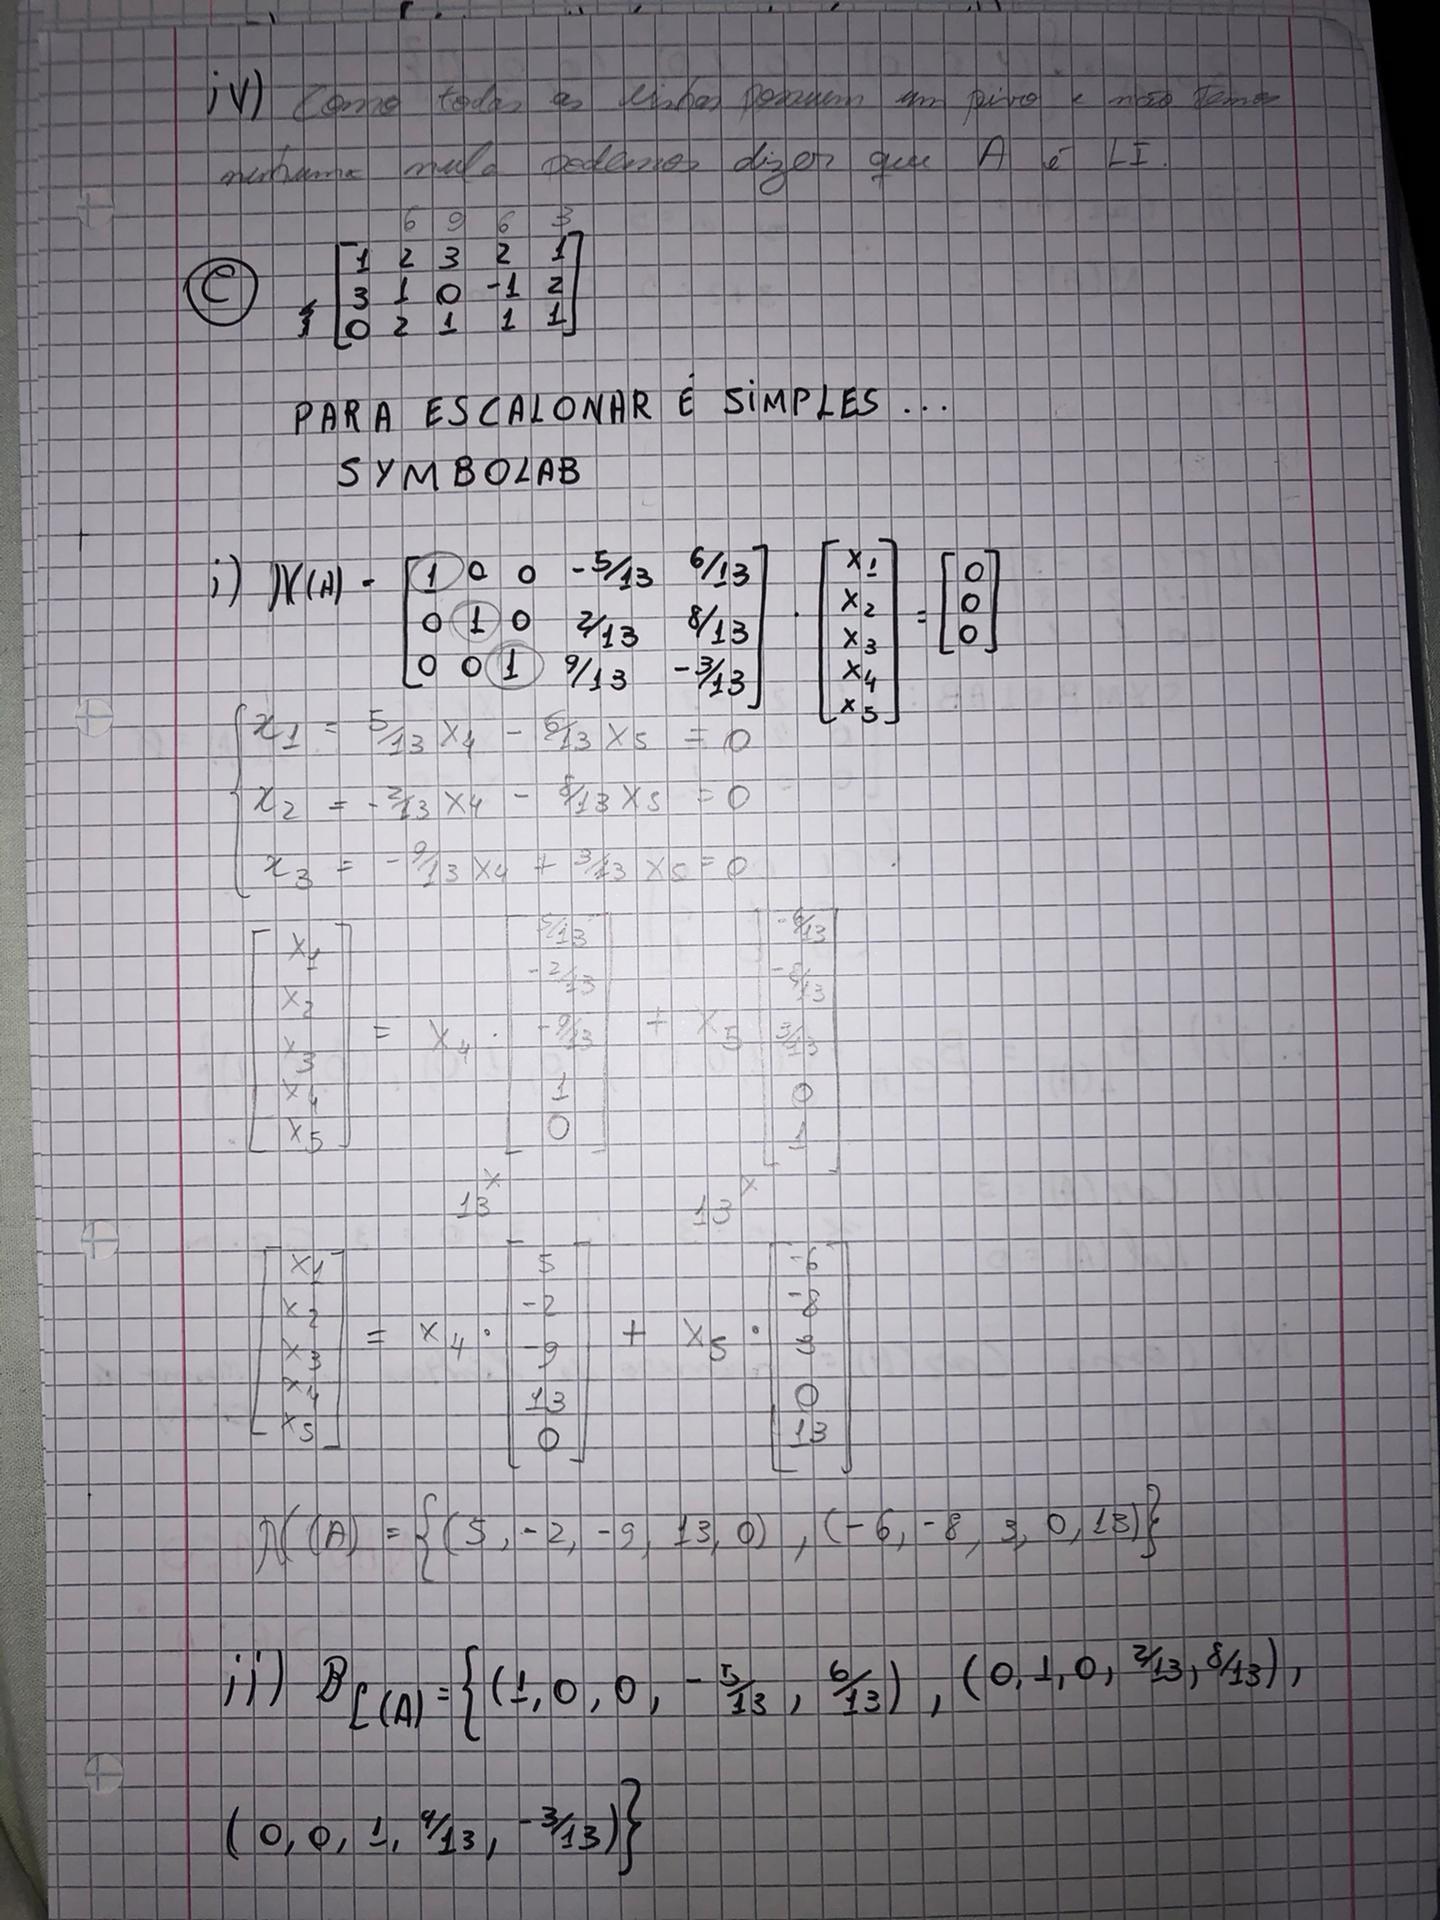 iv) Como todas as linhas possuem um pivo e não temos
nenhuma nula podemos dizer que A é LI.
6 9 6 3
C [1 2 3 2 1]
[3 1 0 -1 2]
[0 2 1 1 1]
PARA ESCALONAR É SIMPLES ...
SYMBOLAB
i) N(A) - [1 0 0 -5/13 6/13] . [x1] = [0]
[0 1 0 2/13 8/13] [x2] [0]
[0 0 1 9/13 -3/13] [x3] [0]
[x4]
[x5]
{ x1 = 5/13 x4 - 6/13 x5 = 0
x2 = -2/13 x4 - 8/13 x5 = 0
x3 = -9/13 x4 + 3/13 x5 = 0
[x1] [5/13] [-6/13]
[x2] [-2/13] [-8/13]
[x3] = x4 . [-9/13] + x5 [3/13]
[x4] [1] [0]
[x5] [0] [1]
13x 13x
[x1] [5] [-6]
[x2] [-2] [-8]
[x3] = x4 . [-9] + x5 . [3]
[x4] [13] [0]
[x5] [0] [13]
N(A) = {(5, -2, -9, 13, 0), (-6, -8, 3, 0, 13)}
ii) B L(A) = {(1, 0, 0, -5/13, 6/13), (0, 1, 0, 2/13, 8/13),
(0, 0, 1, 9/13, -3/13)}